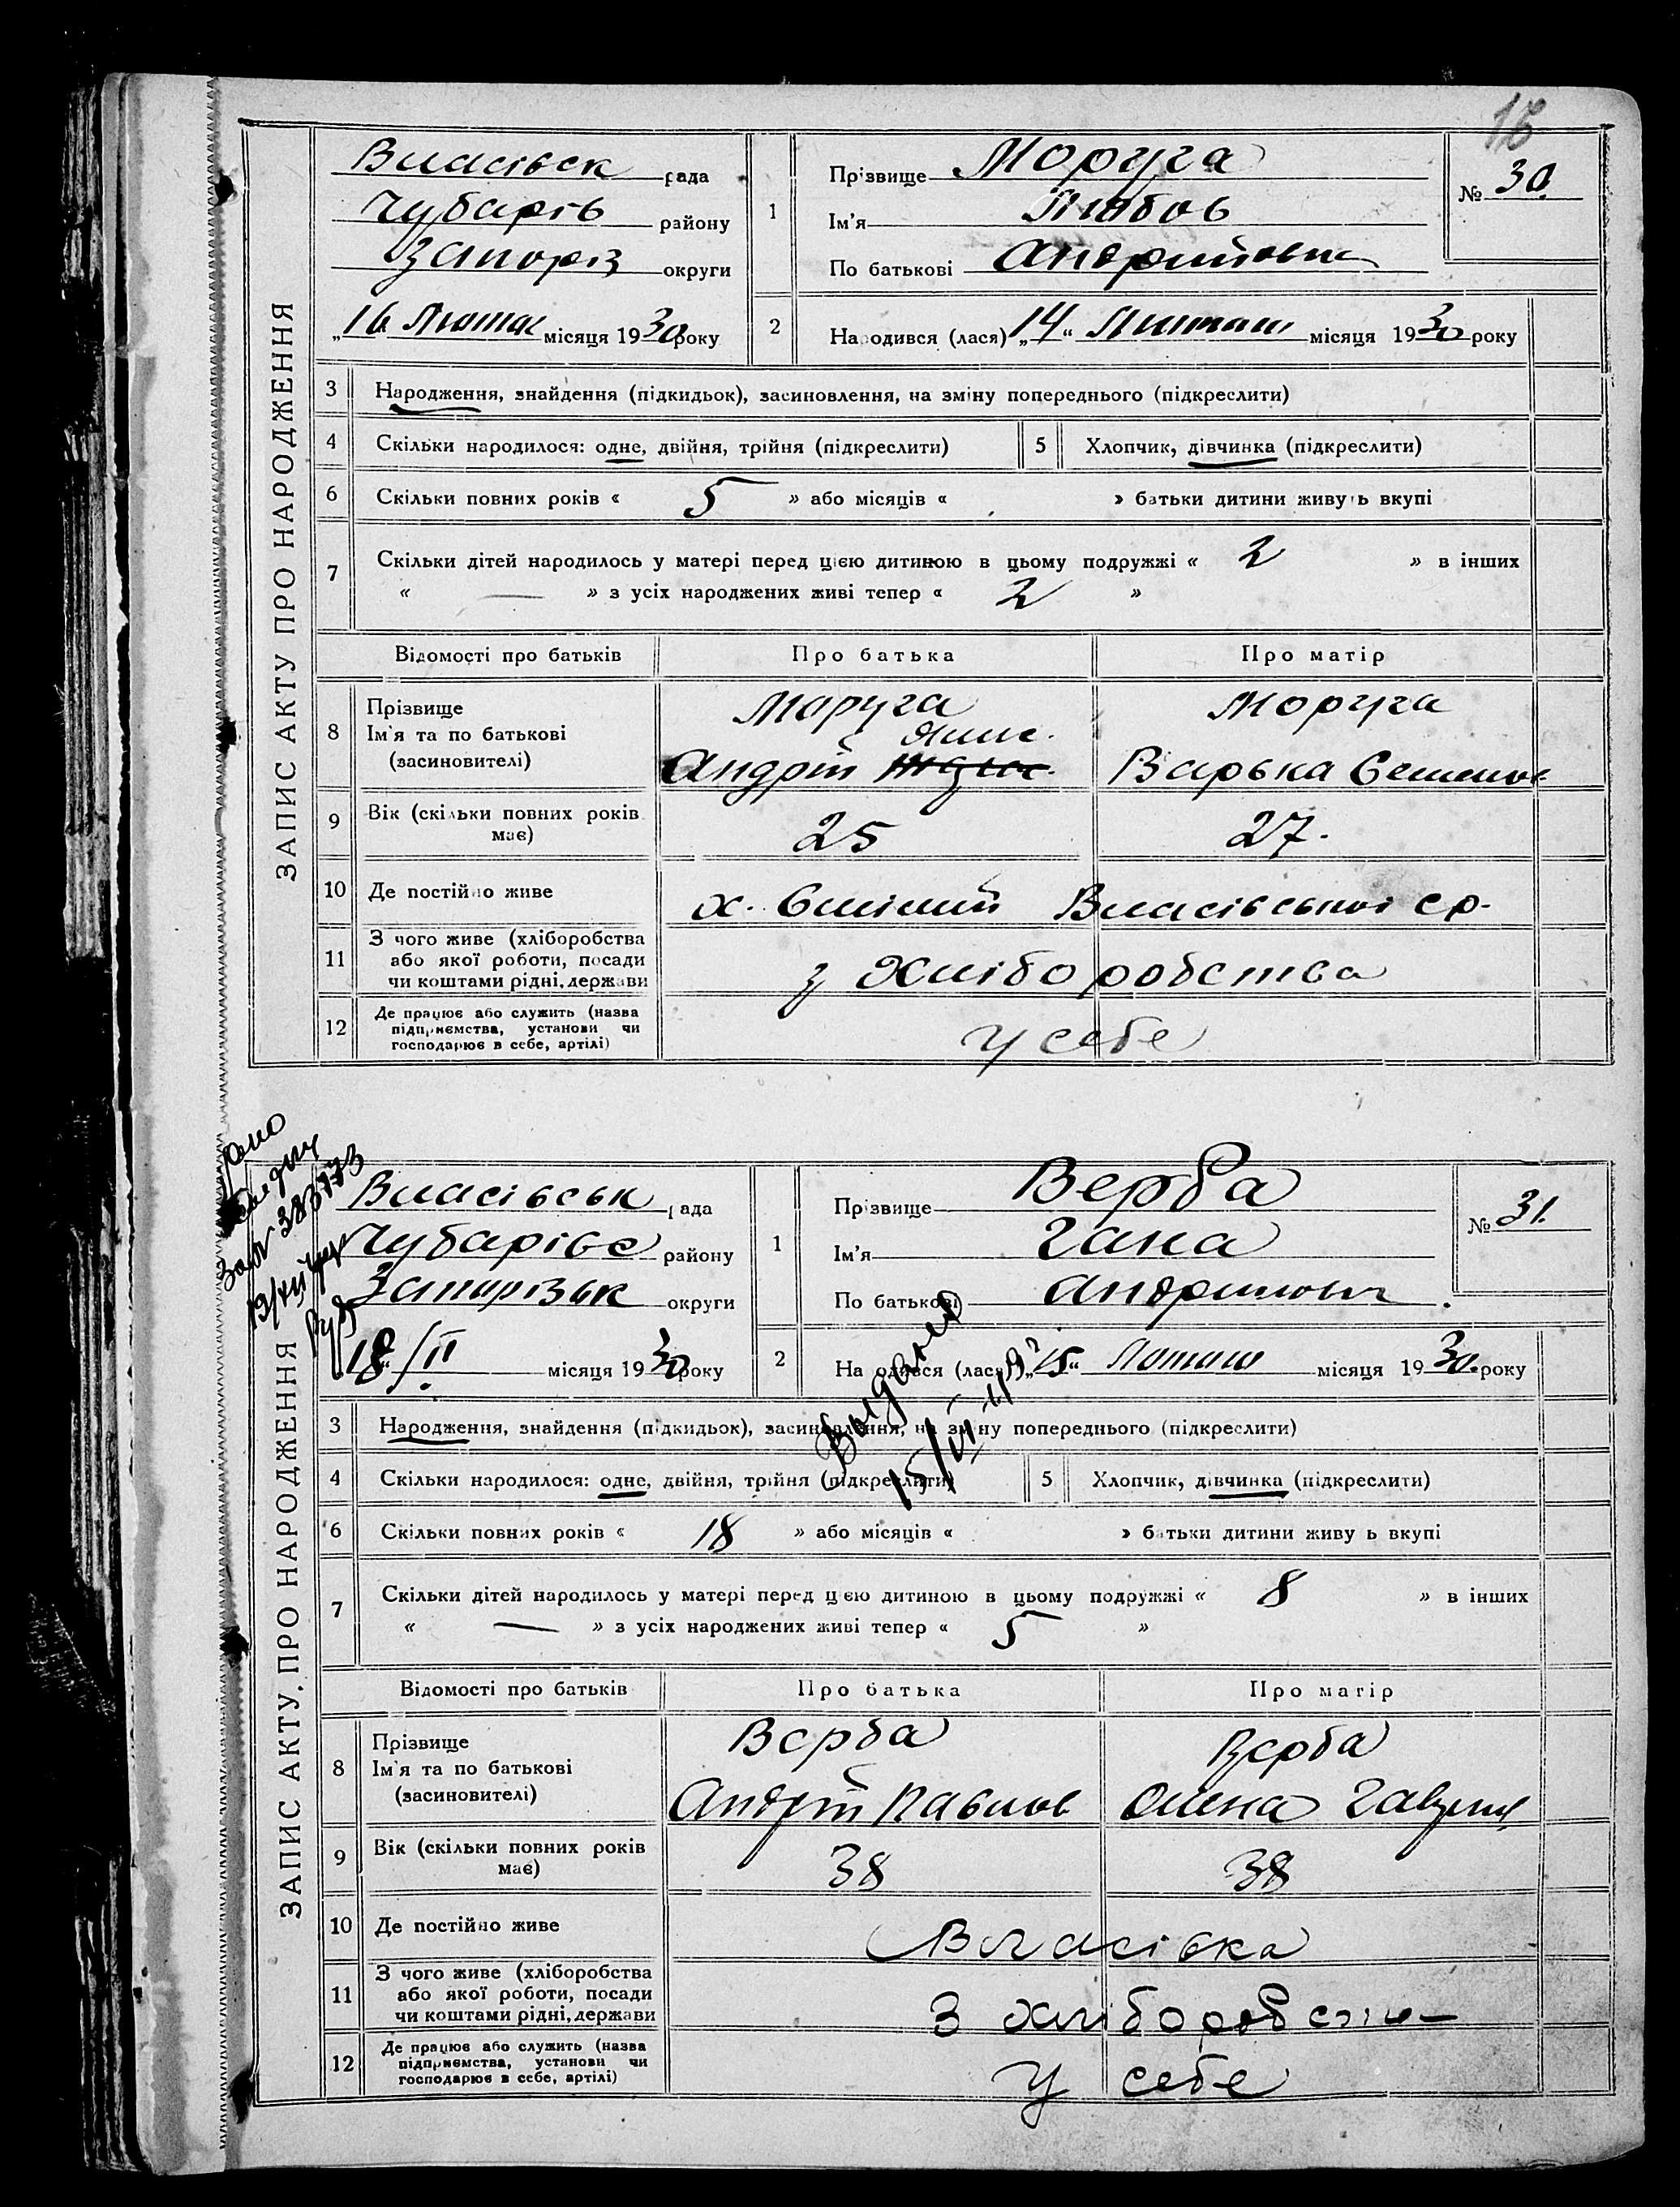 16
ЗАПИС АКТУ ПРО НАРОДЖЕННЯ
Власівськ рада
Чубарів району
Запоріз округи
„16 Лютаг місяця 1930 року
1 Прізвище Моруга
Ім'я Любов
По батькові Андриівна
№ 30.
2 Народився (лася) „14“ Лютаго місяця 1930 року
3 Народження, знайдення (підкидьок), засиновлення, на зміну попереднього (підкреслити)
4 Скільки народилося: одне, двійня, трійня (підкреслити) 5 Хлопчик, дівчинка (підкреслити)
6 Скільки повних років « 5 » або місяців « » батьки дитини живуть вкупі
7 Скільки дітей народилось у матері перед цією дитиною в цьому подружжі « 2 » в інших
« — » з усіх народжених живі тепер « 2 »
Відомості про батьків Про батька Про матір
8 Прізвище Моруга Моруга
Ім'я та по батькові (засновителі) Андрій Варька Семенов
9 Вік (скільки повних років має) 25 27.
10 Де постійно живе х. Власівської ср.
11 З чого живе (хліборобства або якої роботи, посади чи коштами рідні, держави з хліборобства
12 Де працює або служить (назва підприємства, установи чи господарює в себе, артілі) у себе
ЗАПИС АКТУ ПРО НАРОДЖЕННЯ
383773
Власівськ рада
Чубарівс району
Запорізьк округи
„18“/II місяця 1930 року
1 Прізвище Верба
Ім'я Гана
По батькові Андриівн
№ 31.
2 Народився (лася) „15“ Лютаго місяця 1930. року
3 Народження, знайдення (підкидьок), засиновлення, на зміну попереднього (підкреслити)
4 Скільки народилося: одне, двійня, трійня (підкреслити) 5 Хлопчик, дівчинка (підкреслити)
6 Скільки повних років « 18 » або місяців « » батьки дитини живуть вкупі
7 Скільки дітей народилось у матері перед цією дитиною в цьому подружжі « 8 » в інших
« — » з усіх народжених живі тепер « 5 »
Відомості про батьків Про батька Про матір
8 Прізвище Верба Верба
Ім'я та по батькові (засиновителі) Андрій Павлов Олена Гаврил
9 Вік (скільки повних років має) 38 38
10 Де постійно живе Власівка
11 З чого живе (хліборобства або якої роботи, посади чи коштами рідні, держави З хліборобства
12 Де працює або служить (назва підприємства, установи чи господарює в себе, артілі) У себе